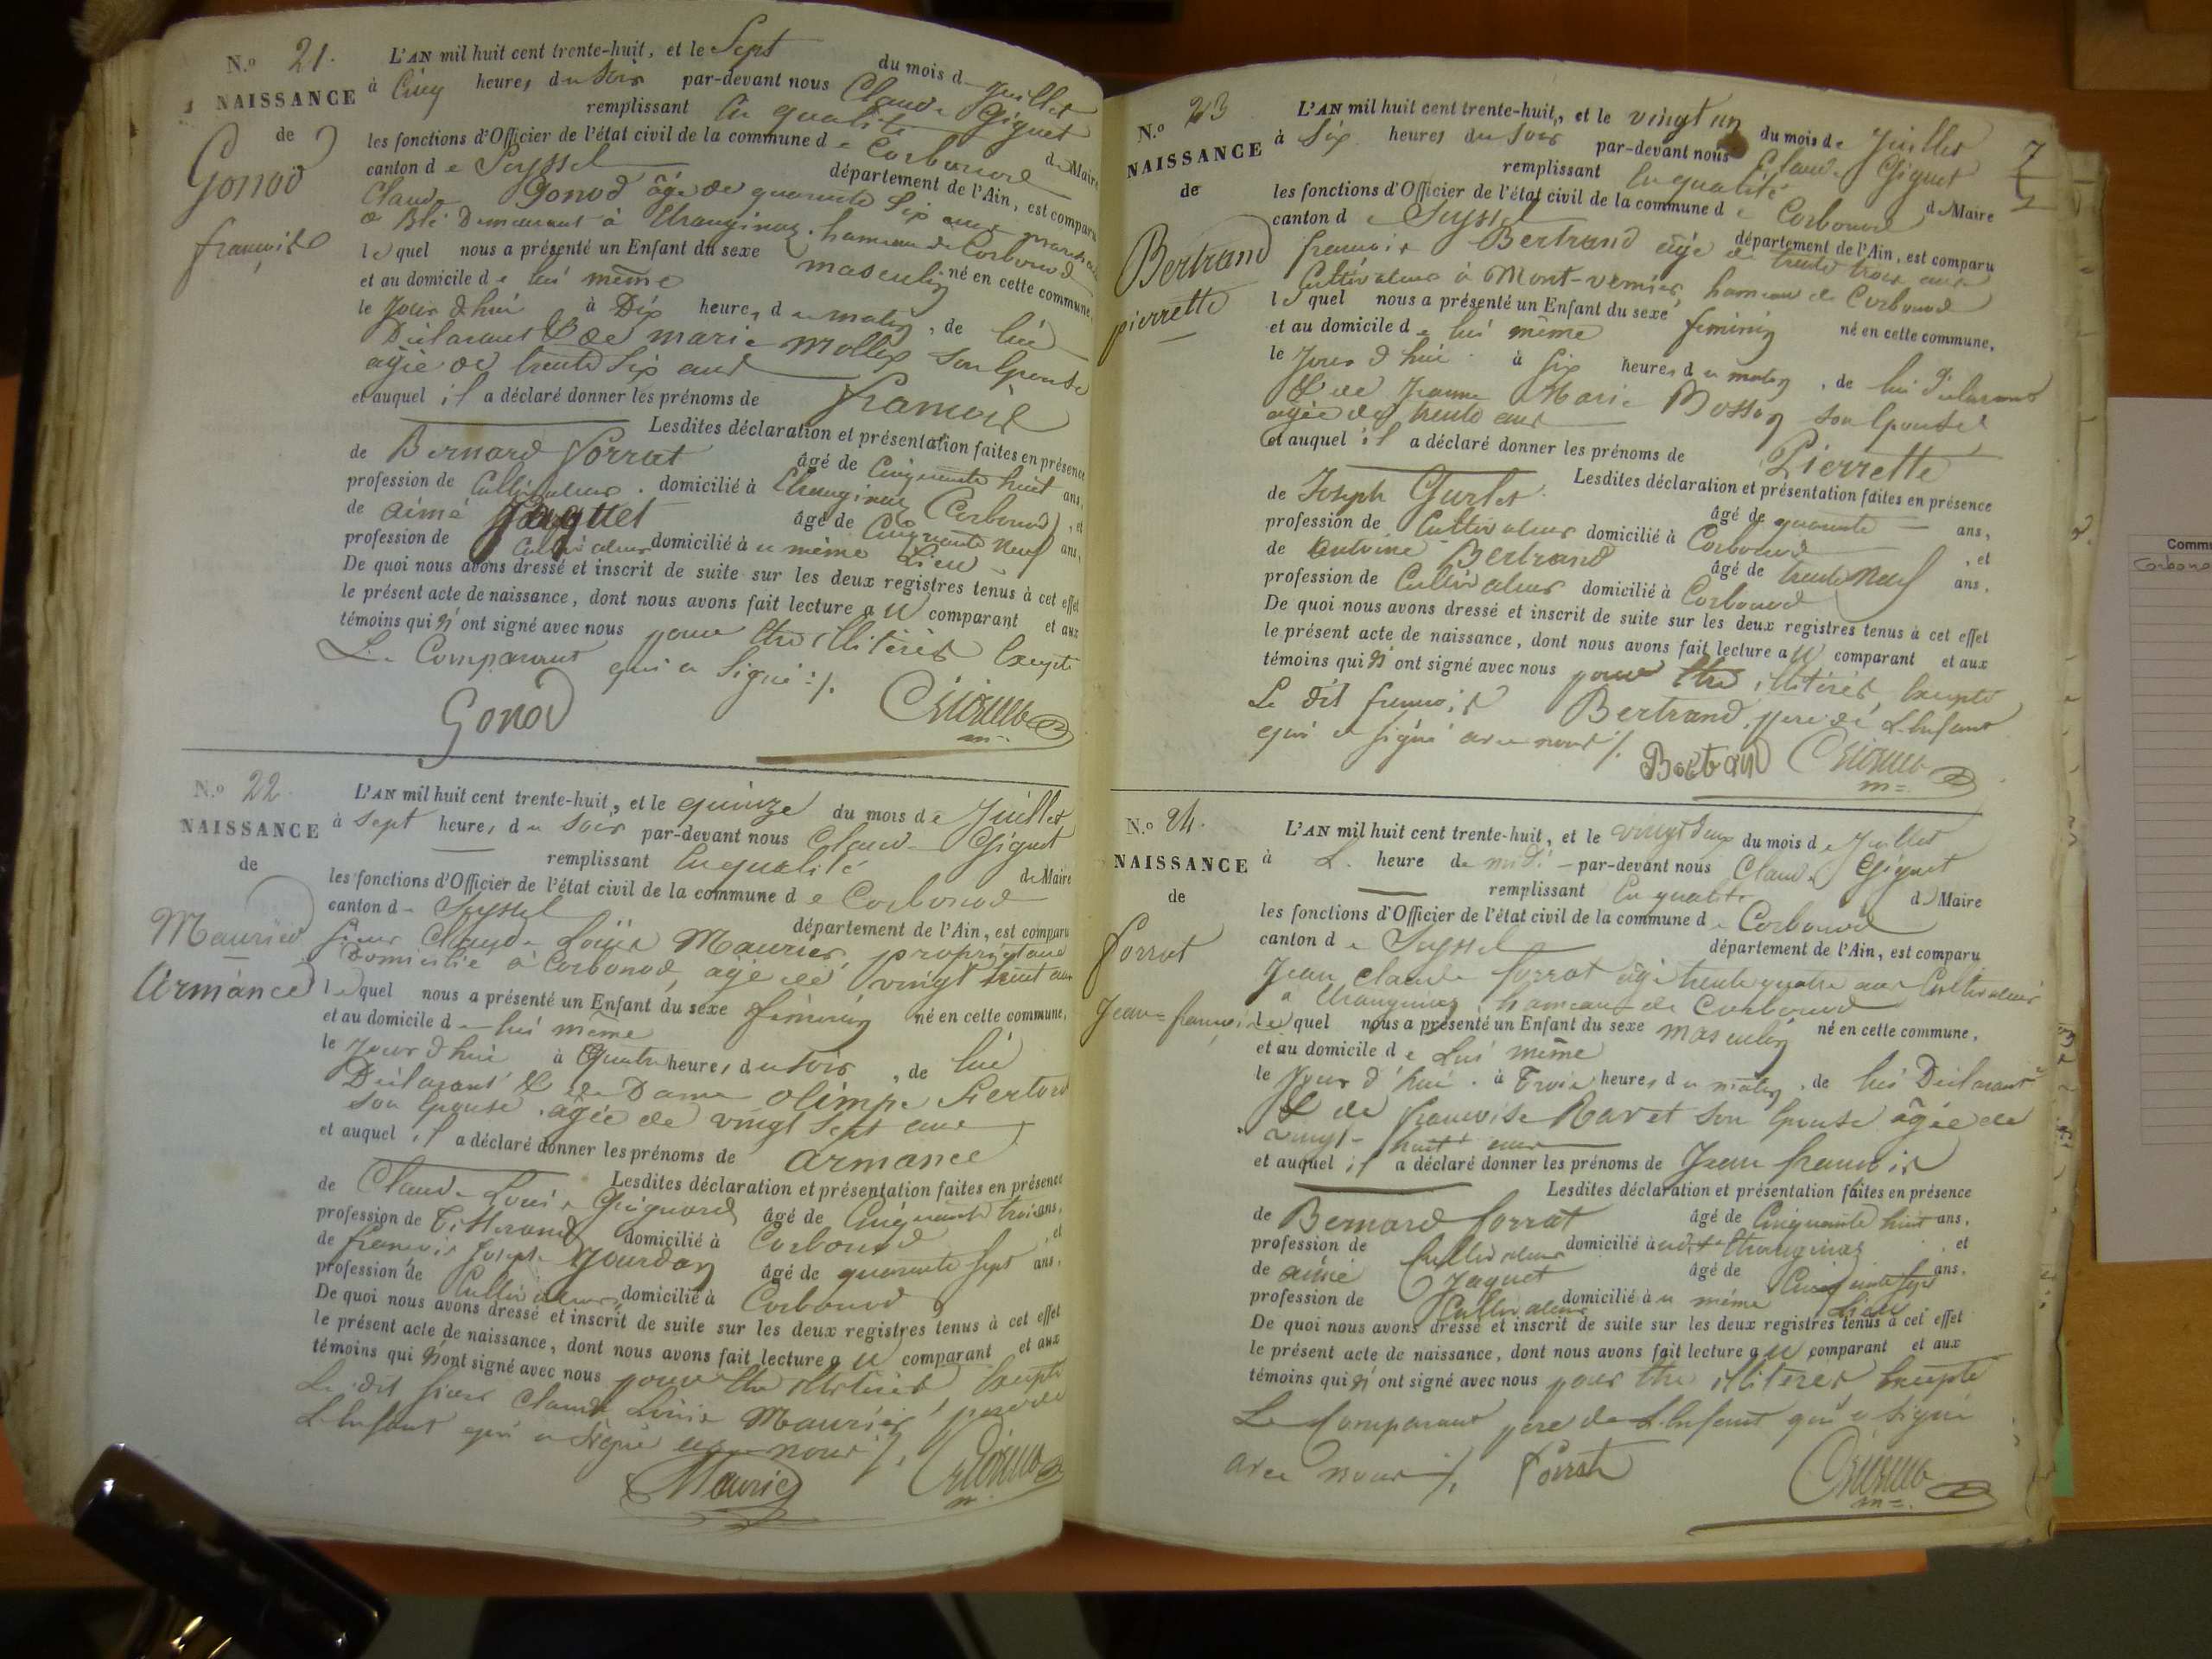 N.o 21.
NAISSANCE
de
Gonod
françois
L'AN mil huit cent trente-huit, et le Sept du mois de juillet
à Cinq heures du soir par-devant nous Claude Giguet
remplissant En qualité de Maire
les fonctions d'Officier de l'état civil de la commune de Corbonod
canton de Seyssel département de l'Ain, est comparu
Claude Gonod âgé de quarante Six ans marchand
de Blé Demeurant à Etranginaz, hameau de Corbonod
lequel nous a présenté un Enfant du sexe masculin né en cette commune,
et au domicile de lui même
le Jour d'hui à Dix heures du matin, de lui
Déclarant & de marie Mollex son Epouse
agée de trente Six ans
et auquel il a déclaré donner les prénoms de françois
Lesdites déclaration et présentation faites en présence
de Bernard forrat âgé de Cinquante huit ans,
profession de Cultivateur domicilié à Etranginaz (Corbonod), et
de aimé Jaquet âgé de Cinquante Neuf ans,
profession de Cultivateur domicilié à u même Lieu
De quoi nous avons dressé et inscrit de suite sur les deux registres tenus à cet effet
le présent acte de naissance, dont nous avons fait lecture au comparant et aux
témoins qui n'ont signé avec nous pour être illiterés Excepté
Le Comparant qui a Signé ./.
Gonod
m=
N.o 22
NAISSANCE
de
Maurier
Armance
L'AN mil huit cent trente-huit, et le quinze du mois de Juillet
à sept heures du soir par-devant nous Claude Giguet
remplissant En qualité de Maire
les fonctions d'Officier de l'état civil de la commune de Corbonod
canton de Seyssel département de l'Ain, est comparu
sieur Claude Louis Maurier, propriétaire
Domicilié à Corbonod, agé de vingt huit ans
lequel nous a présenté un Enfant du sexe féminin né en cette commune,
et au domicile de lui même
le Jour d'hui à Quatre heures du soir, de lui
Déclarant & de Dame olimpe
son Epouse, agée de vingt sept ans
et auquel il a déclaré donner les prénoms de armance
Lesdites déclaration et présentation faites en présence
de Claude Louis Guignard âgé de Cinquante trois ans,
profession de Tisserand domicilié à Corbonod, et
de françois Joseph Jourdan âgé de quarante Sept ans,
profession de Cultivateur domicilié à Corbonod
De quoi nous avons dressé et inscrit de suite sur les deux registres tenus à cet effet
le présent acte de naissance, dont nous avons fait lecture au comparant et aux
témoins qui n'ont signé avec nous pour être illiterés, Excepté
Le dit sieur Claude Louis Maurier, père de
L'Enfant qui a signé avec nous ./.
Maurier
m
N.o 23
NAISSANCE
de
Bertrand
pierrette
L'AN mil huit cent trente-huit, et le vingt un du mois de Juillet
à Six heures du soir par-devant nous Claude Giguet
remplissant En qualité de Maire
les fonctions d'Officier de l'état civil de la commune de Corbonod
canton de Seyssel département de l'Ain, est comparu
françois Bertrand âgé de trente trois ans
Cultivateur à Mont-vernier, hameau de Corbonod
lequel nous a présenté un Enfant du sexe féminin né en cette commune,
et au domicile de lui même
le Jour d'hui à Six heures du matin, de lui Déclarant
& de Jeanne Marie Bosson son Epouse
agée de trente ans
et auquel il a déclaré donner les prénoms de Pierrette
Lesdites déclaration et présentation faites en présence
de Joseph Gurlet âgé de quarante ans,
profession de Cultivateur domicilié à Corbonod, et
de Antoine Bertrand âgé de trente Neuf ans,
profession de Cultivateur domicilié à Corbonod
De quoi nous avons dressé et inscrit de suite sur les deux registres tenus à cet effet
le présent acte de naissance, dont nous avons fait lecture au comparant et aux
témoins qui n'ont signé avec nous pour être illiterés, Excepté
Le dit françois Bertrand, pere de L'Enfant
qui a signé avec nous ./.
Bertrand
m=
N.o 24.
NAISSANCE
de
forrat
Jean=françois
L'AN mil huit cent trente-huit, et le vingt deux du mois de Juillet
à L. heure de midi par-devant nous Claude Giguet
remplissant En qualité de Maire
les fonctions d'Officier de l'état civil de la commune de Corbonod
canton de Seyssel département de l'Ain, est comparu
Jean Claude forrat âgé trente quatre ans Cultivateur
à Etranginaz hameau de Corbonod
lequel nous a présenté un Enfant du sexe masculin né en cette commune,
et au domicile de Lui même
le Jour d'hui à Trois heures du matin, de lui Déclarant
& de françoise Ravet son Epouse âgée de
vingt-huit ans
et auquel il a déclaré donner les prénoms de Jean françois
Lesdites déclaration et présentation faites en présence
de Bernard forrat âgé de Cinquante huit ans,
profession de Cultivateur domicilié à Etranginaz, et
de aimé Jaquet âgé de Cinquante Sept ans,
profession de Cultivateur domicilié à u même Lieu
De quoi nous avons dressé et inscrit de suite sur les deux registres tenus à cet effet
le présent acte de naissance, dont nous avons fait lecture au comparant et aux
témoins qui n'ont signé avec nous pour être illiterés Excepté
Le Comparant pere de L'Enfant qui a signé
avec nous ./. forrat
m=
Comm
Corbono